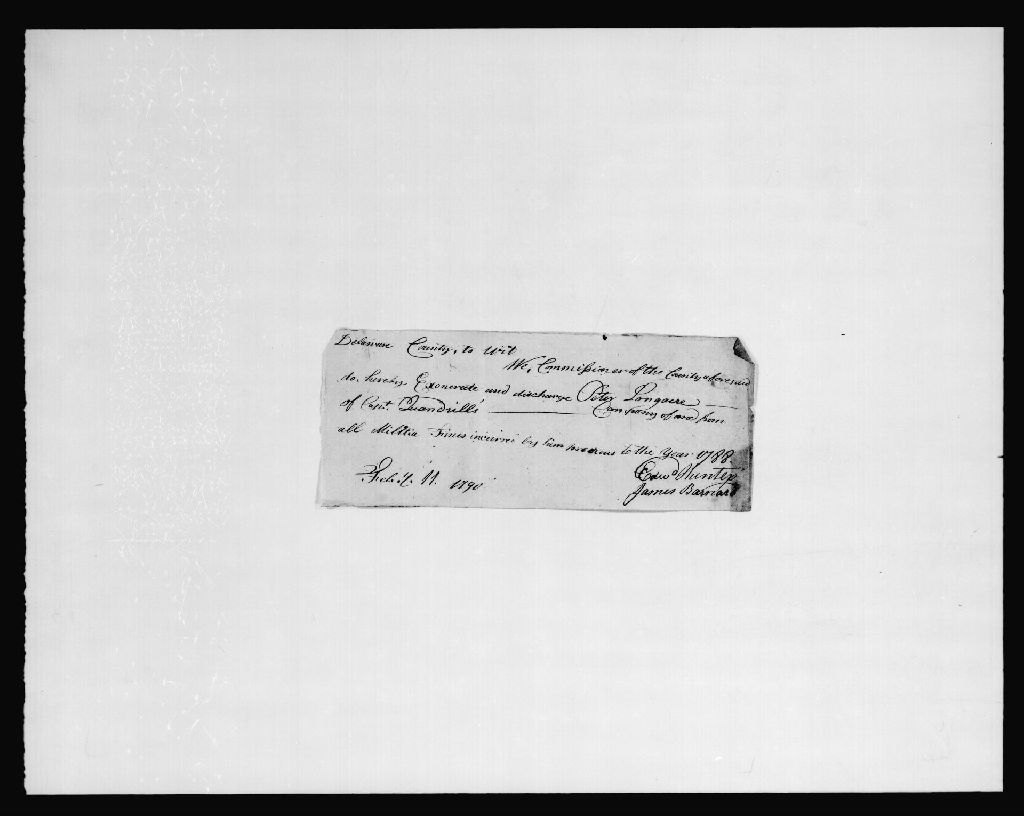 Delaware County, to Wit
We, Commissioners of the County aforesaid
do hereby Exonerate and discharge Peter Longacre
of Capt. Quandrills Company of and from
all Militia Fines incurred by him previous to the Year 1788
Edwd Hunter
Feb.y. 11. 1790
James Barnard